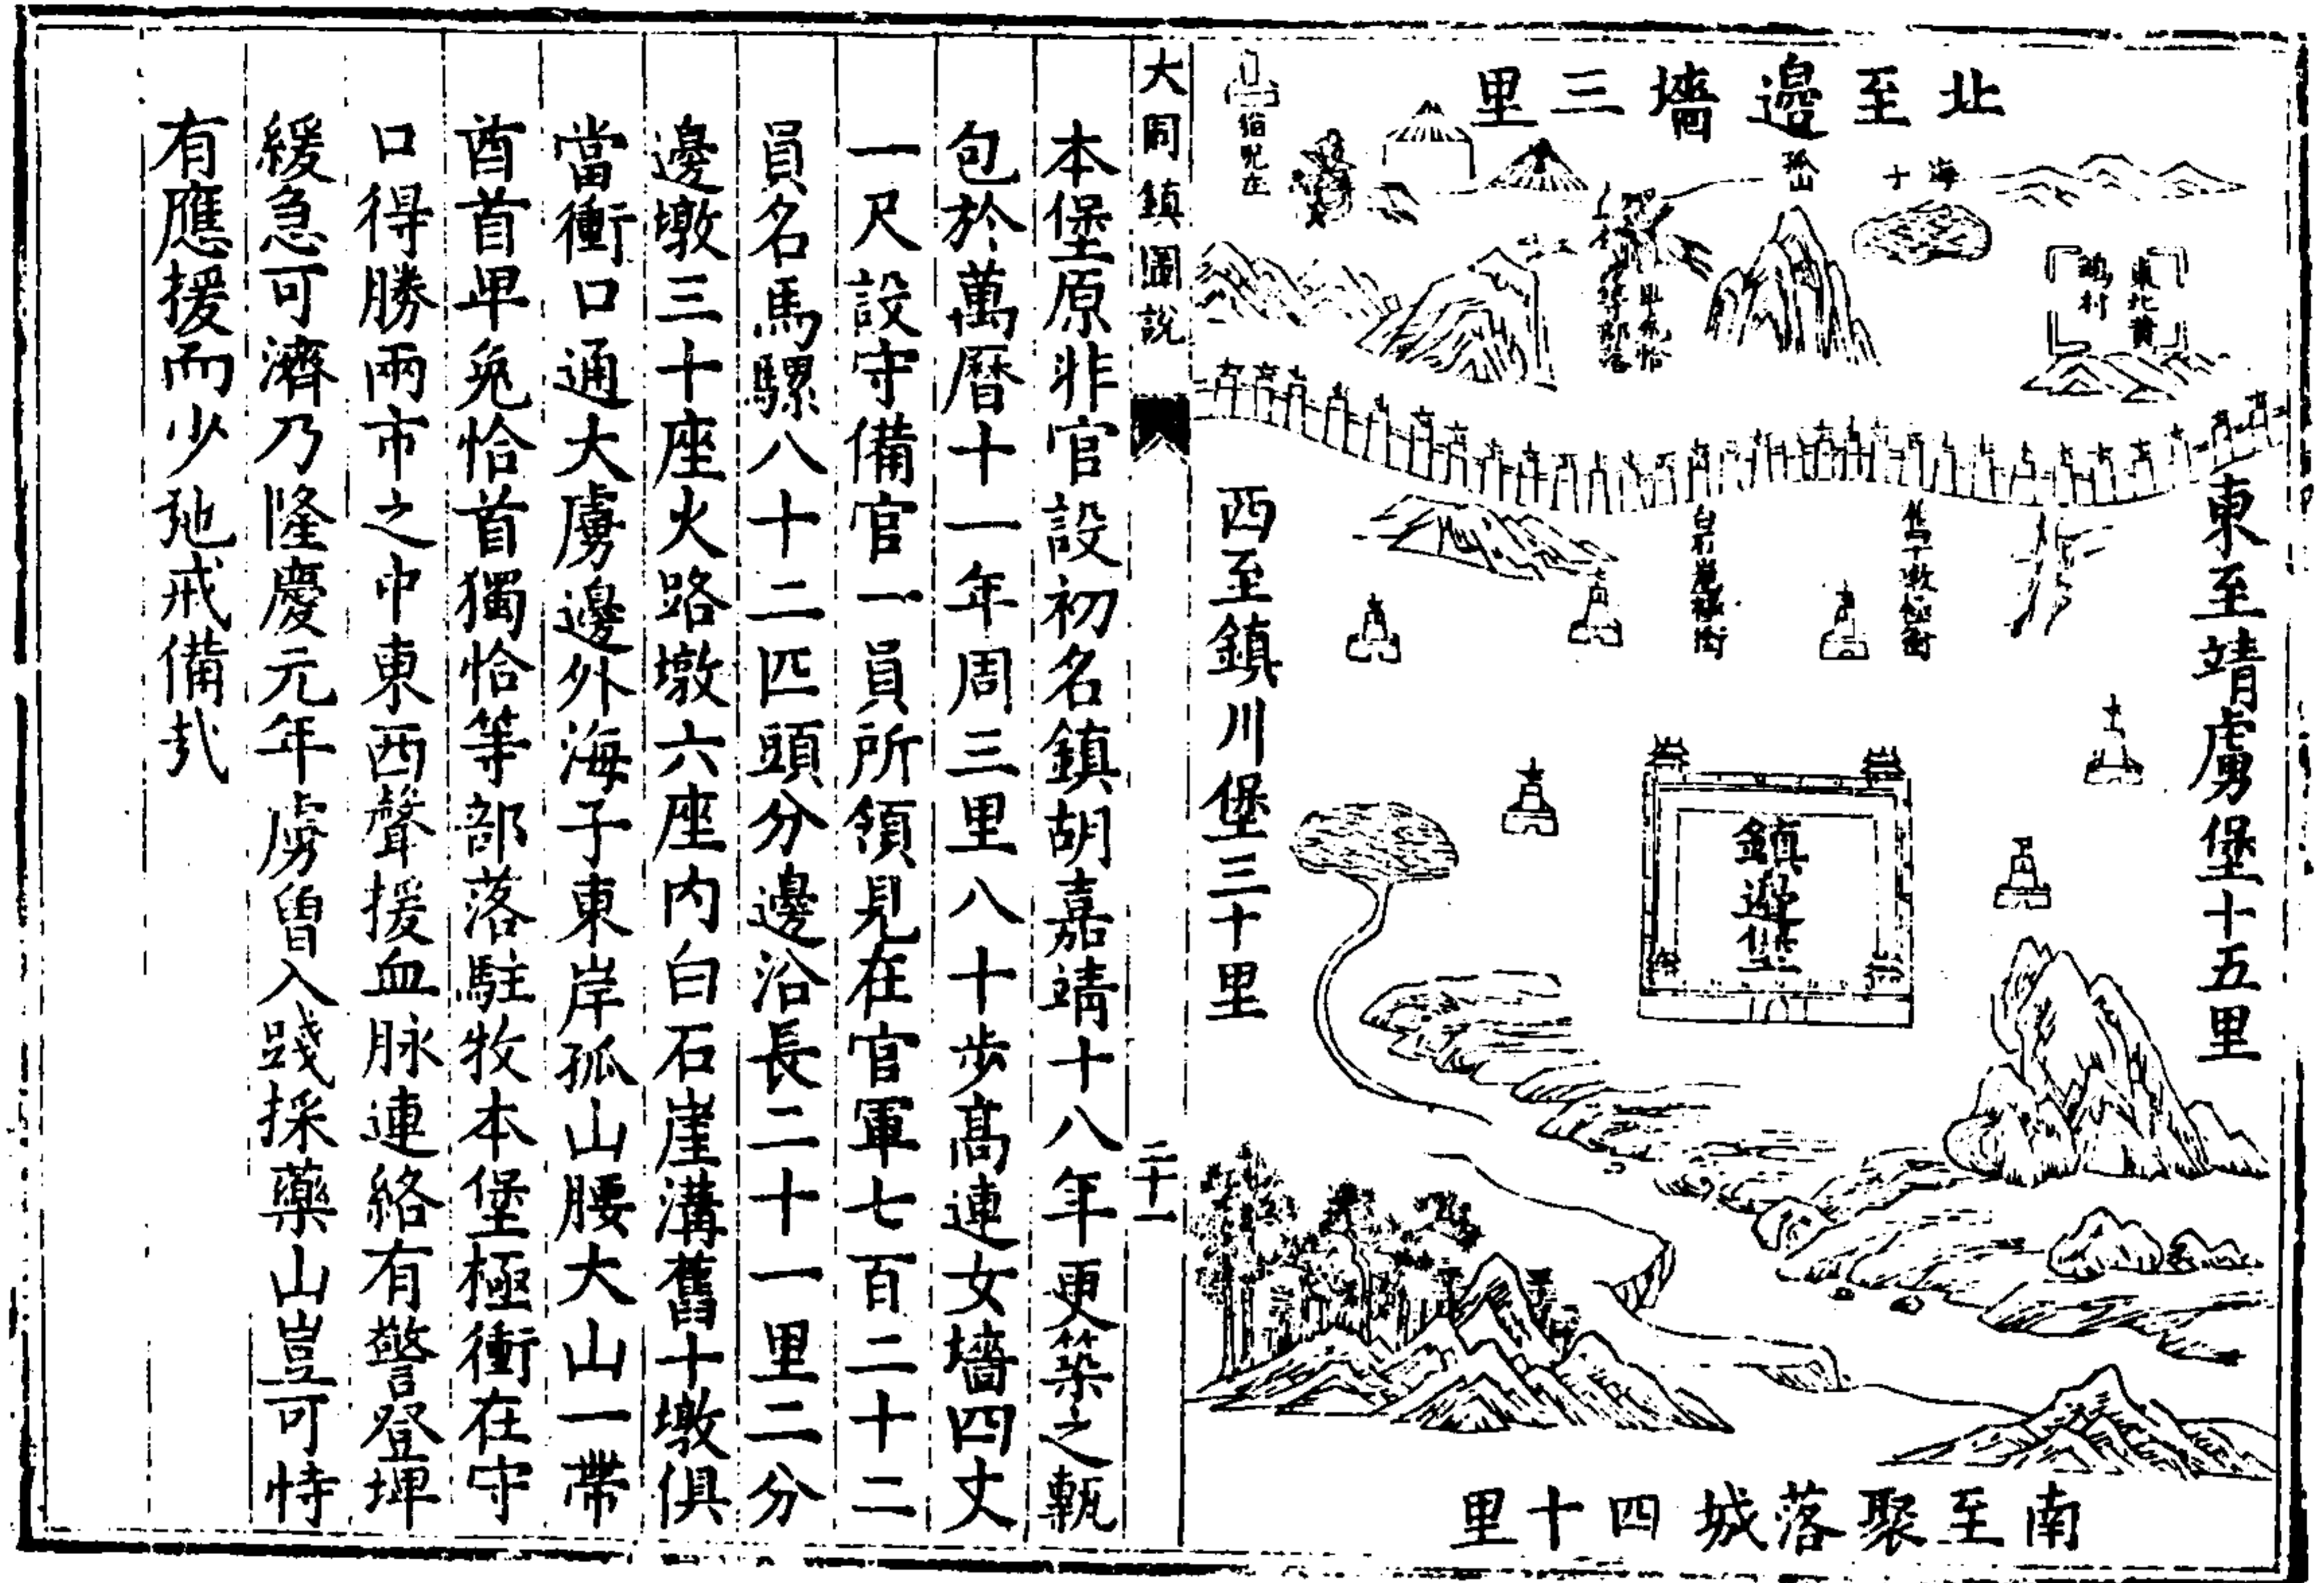 北至邊墻三里
海子
孤山
東至靖虜堡十五里
舊十墩極衝
鎮邊堡
西至鎮川堡三十里
南至聚落城四十里
大同鎮圖說
二十一
本堡原非官設初名鎮胡嘉靖十八年更築之甎
包於萬曆十一年周三里八十步高連女墻四丈
一尺設守備官一員所領見在官軍七百二十二
員名馬騾八十二匹頭分邊沿長二十一里二分
邊墩三十座火路墩六座内白石崖溝舊十墩俱
當衝口通大虜邊外海子東岸孤山腰大山一帶
酋首卑兔恰首獨恰等部落駐牧本堡極衝在守
口得勝兩市之中東西聲援血脉連絡有警登埤
緩急可濟乃隆慶元年虜曾入踐採藥山豈可恃
有應援而少弛戒備哉